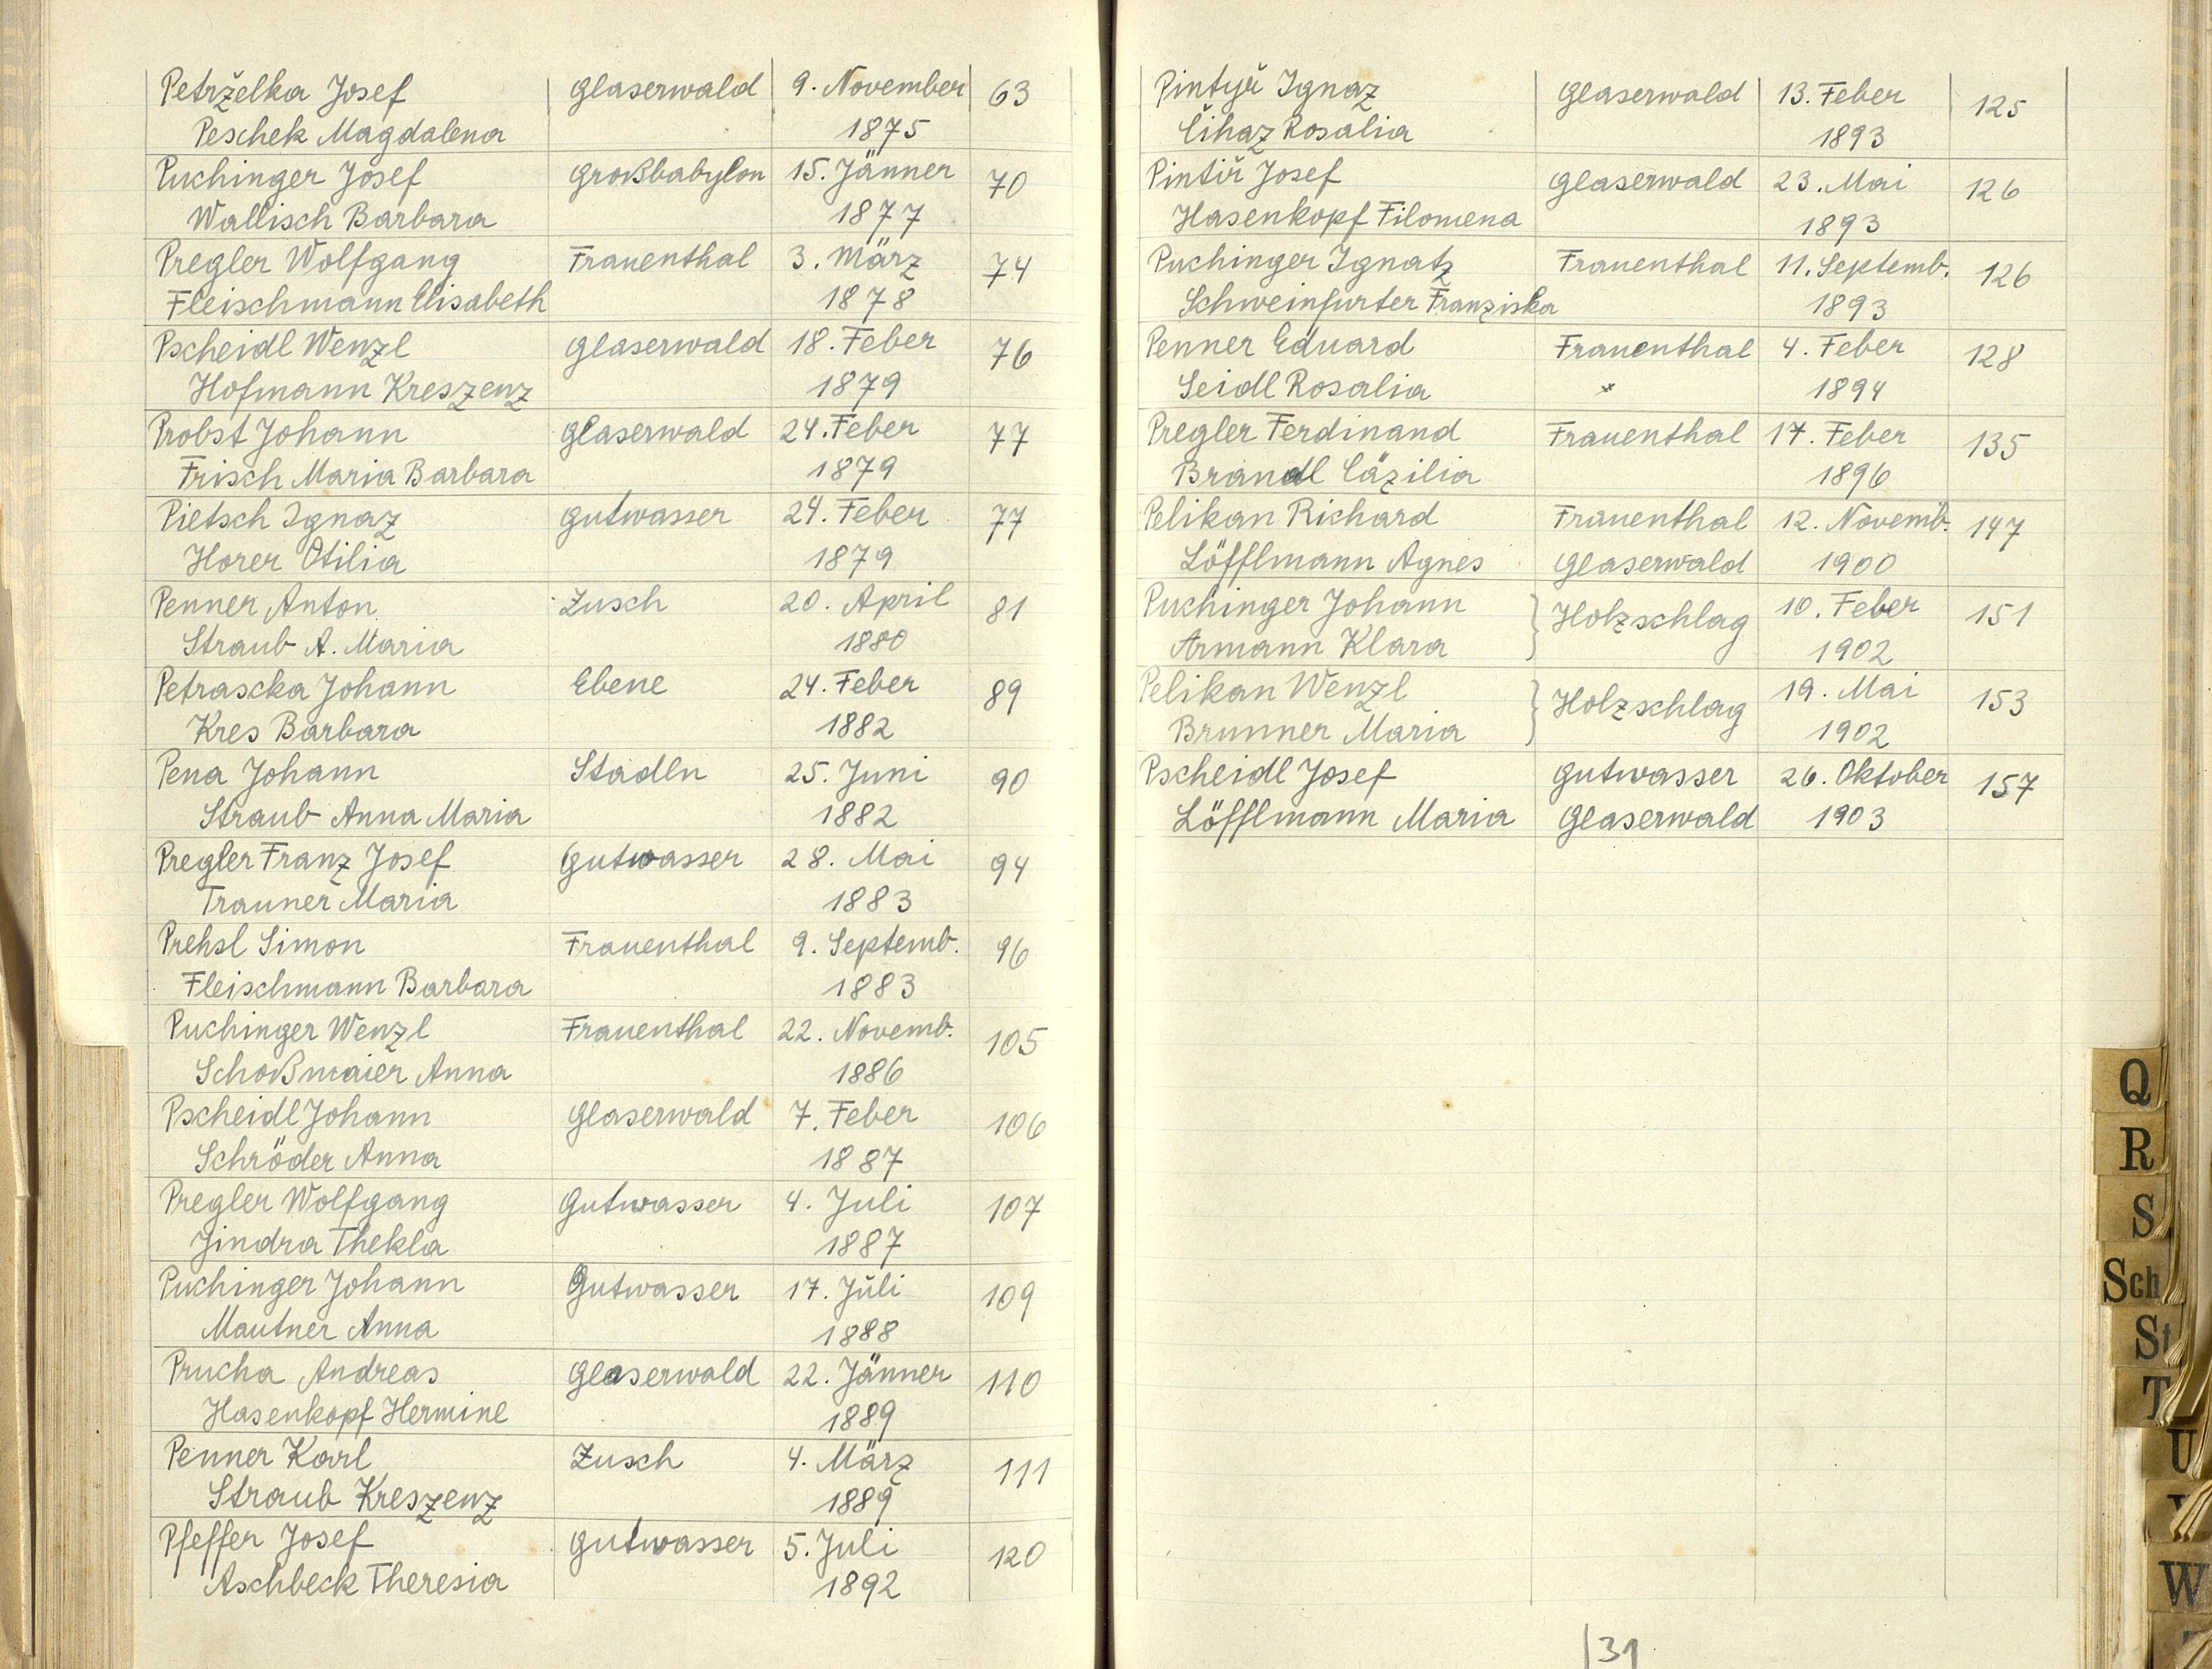 Petrželka Josef Glaserwald 9. November 63
Peschek Magdalena 1875
Puchinger Josef Großbabylon 15. Jänner 70
Wallisch Barbara 1877
Pregler Wolfgang Frauenthal 3. März 74
Fleischmann Elisabeth 1878
Pscheidl Wenzl Glaserwald 18. Feber 76
Hofmann Kreszenz 1879
Probst Johann Glaserwald 24. Feber 77
Frisch Maria Barbara 1879
Pietsch Ignaz Gutwasser 24. Feber 77
Horer Otilia 1879
Penner Anton Zusch 20. April 81
Straub A. Maria 1880
Petrascka Johann Ebene 24. Feber 89
Kres Barbara 1882
Pena Johann Stadln 25. Juni 90
Straub Anna Maria 1882
Pregler Franz Josef Gutwasser 28. Mai 94
Trauner Maria 1883
Prehsl Simon Frauenthal 9. Septemb. 96
Fleischmann Barbara 1883
Puchinger Wenzl Frauenthal 22. Novemb. 105
Schoßmaier Anna 1886
Pscheidl Johann Glaserwald 7. Feber 106
Schröder Anna 1887
Pregler Wolfgang Gutwasser 4. Juli 107
Jindra Thekla 1887
Puchinger Johann Gutwasser 17. Juli 109
Mautner Anna 1888
Prucha Andreas Glaserwald 22. Jänner 110
Hasenkopf Hermine 1889
Penner Karl Zusch 4. März 111
Straub Kreszenz 1889
Pfeffer Josef Gutwasser 5. Juli 120
Aschbeck Theresia 1892
Pintyř Ignaz Glaserwald 13. Feber 125
Čihaz Rosalia 1893
Pintiř Josef Glaserwald 23. Mai 126
Hasenkopf Filomena 1893
Puchinger Ignatz Frauenthal 11. Septemb. 126
Schweinfurter Franziska 1893
Penner Eduard Frauenthal 4. Feber 128
Seidl Rosalia " 1894
Pregler Ferdinand Frauenthal 17. Feber 135
Brandl Cäzilia 1896
Pelikan Richard Frauenthal 12. Novemb. 147
Löfflmann Agnes Glaserwald 1900
Puchinger Johann } Holzschlag 10. Feber 151
Armann Klara 1902
Pelikan Wenzl } Holzschlag 19. Mai 153
Brunner Maria 1902
Pscheidl Josef Gutwasser 26. Oktober 157
Löfflmann Maria Glaserwald 1903
31
Q
R
S
Sch
St
T
U
W